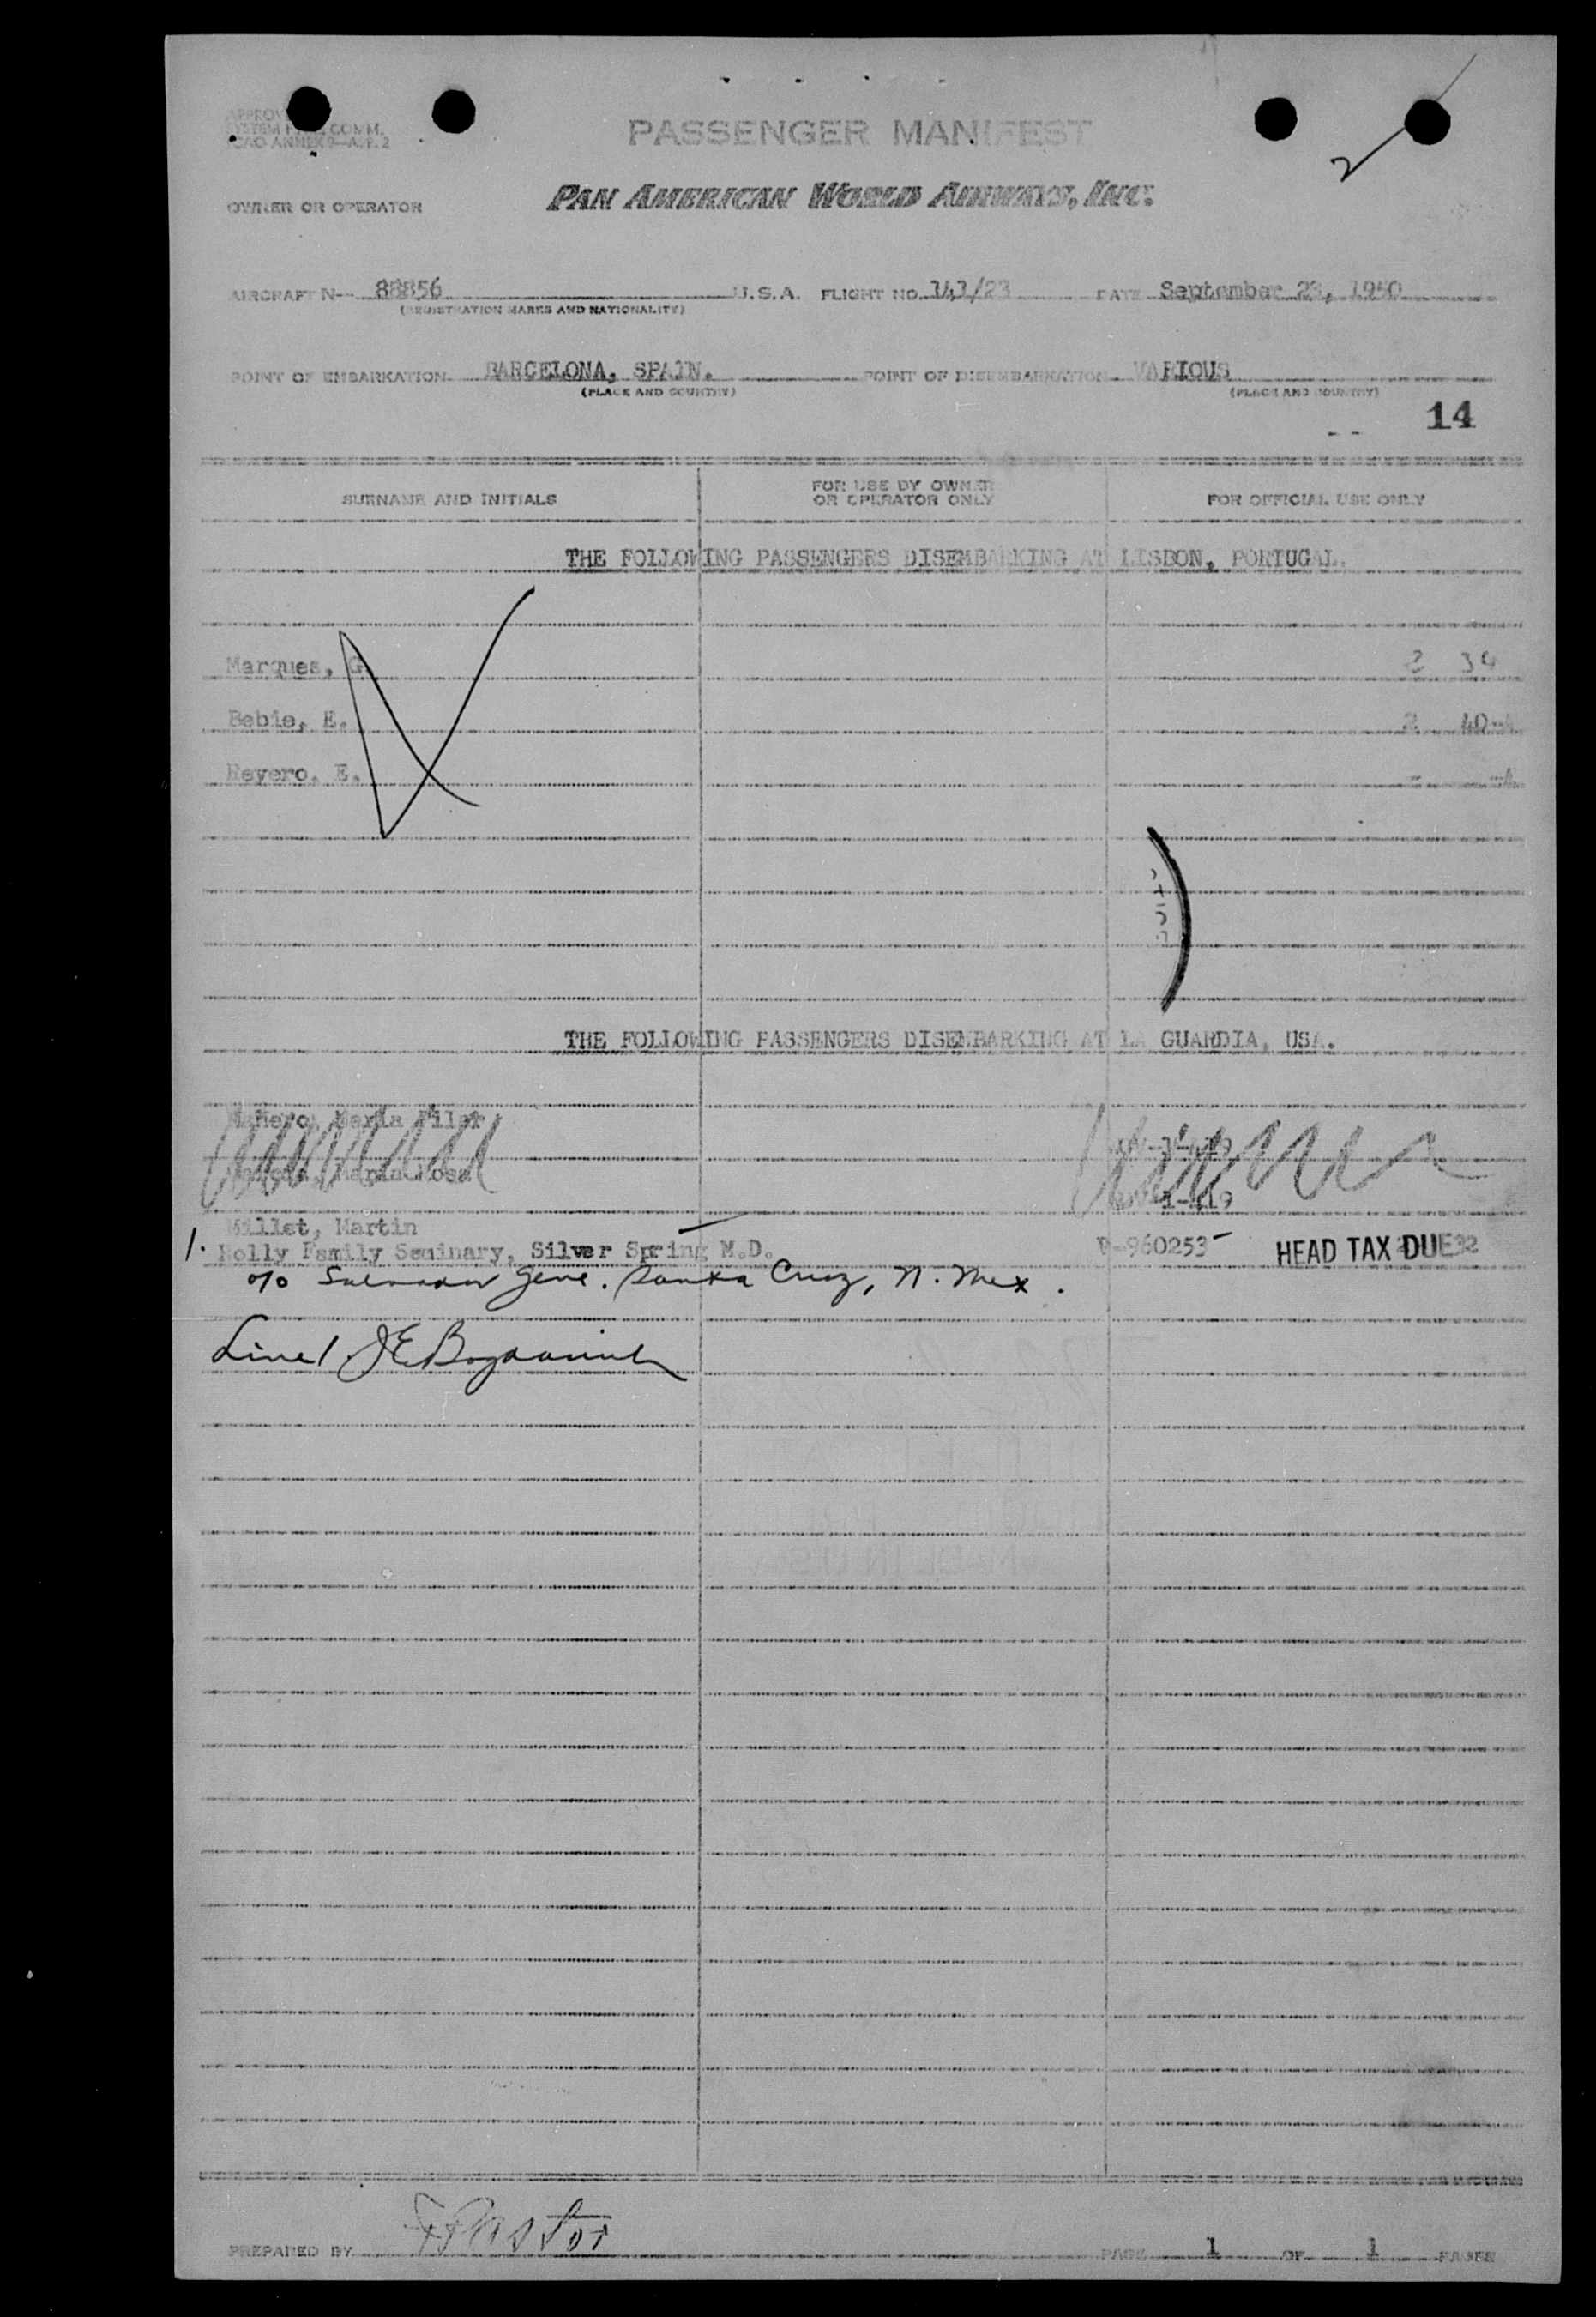 2
PASSENGER MANIFEST
OWNER OR OPERATOR PAN AMERICAN WORLD AIRWAYS, INC.
AIRCRAFT N- 88856 U.S.A. FLIGHT NO. 141/23 DATE September 23, 1950
(REGISTRATION MARKS AND NATIONALITY)
POINT OF EMBARKATION BARCELONA, SPAIN. POINT OF DISEMBARKATION VARIOUS
(PLACE AND COUNTRY) (PLACE AND COUNTRY)
14
SURNAME AND INITIALS FOR USE BY OWNER OR OPERATOR ONLY FOR OFFICIAL USE ONLY
THE FOLLOWING PASSENGERS DISEMBARKING AT LISBON, PORTUGAL.
Marques, G. 2 39
Bebie, E. 2 40
Reyero, E.
THE FOLLOWING PASSENGERS DISEMBARKING AT LA GUARDIA, USA.
Maria Pilar
Maria Rosa
Millet, Martin
1. Holly Family Seminary, Silver Spring M.D. P-960253 HEAD TAX DUE 32
c/o Salvador Gene. Santa Cruz, N. Mex.
Line 1
PREPARED BY Pastor PAGE 1 OF 1 PAGES